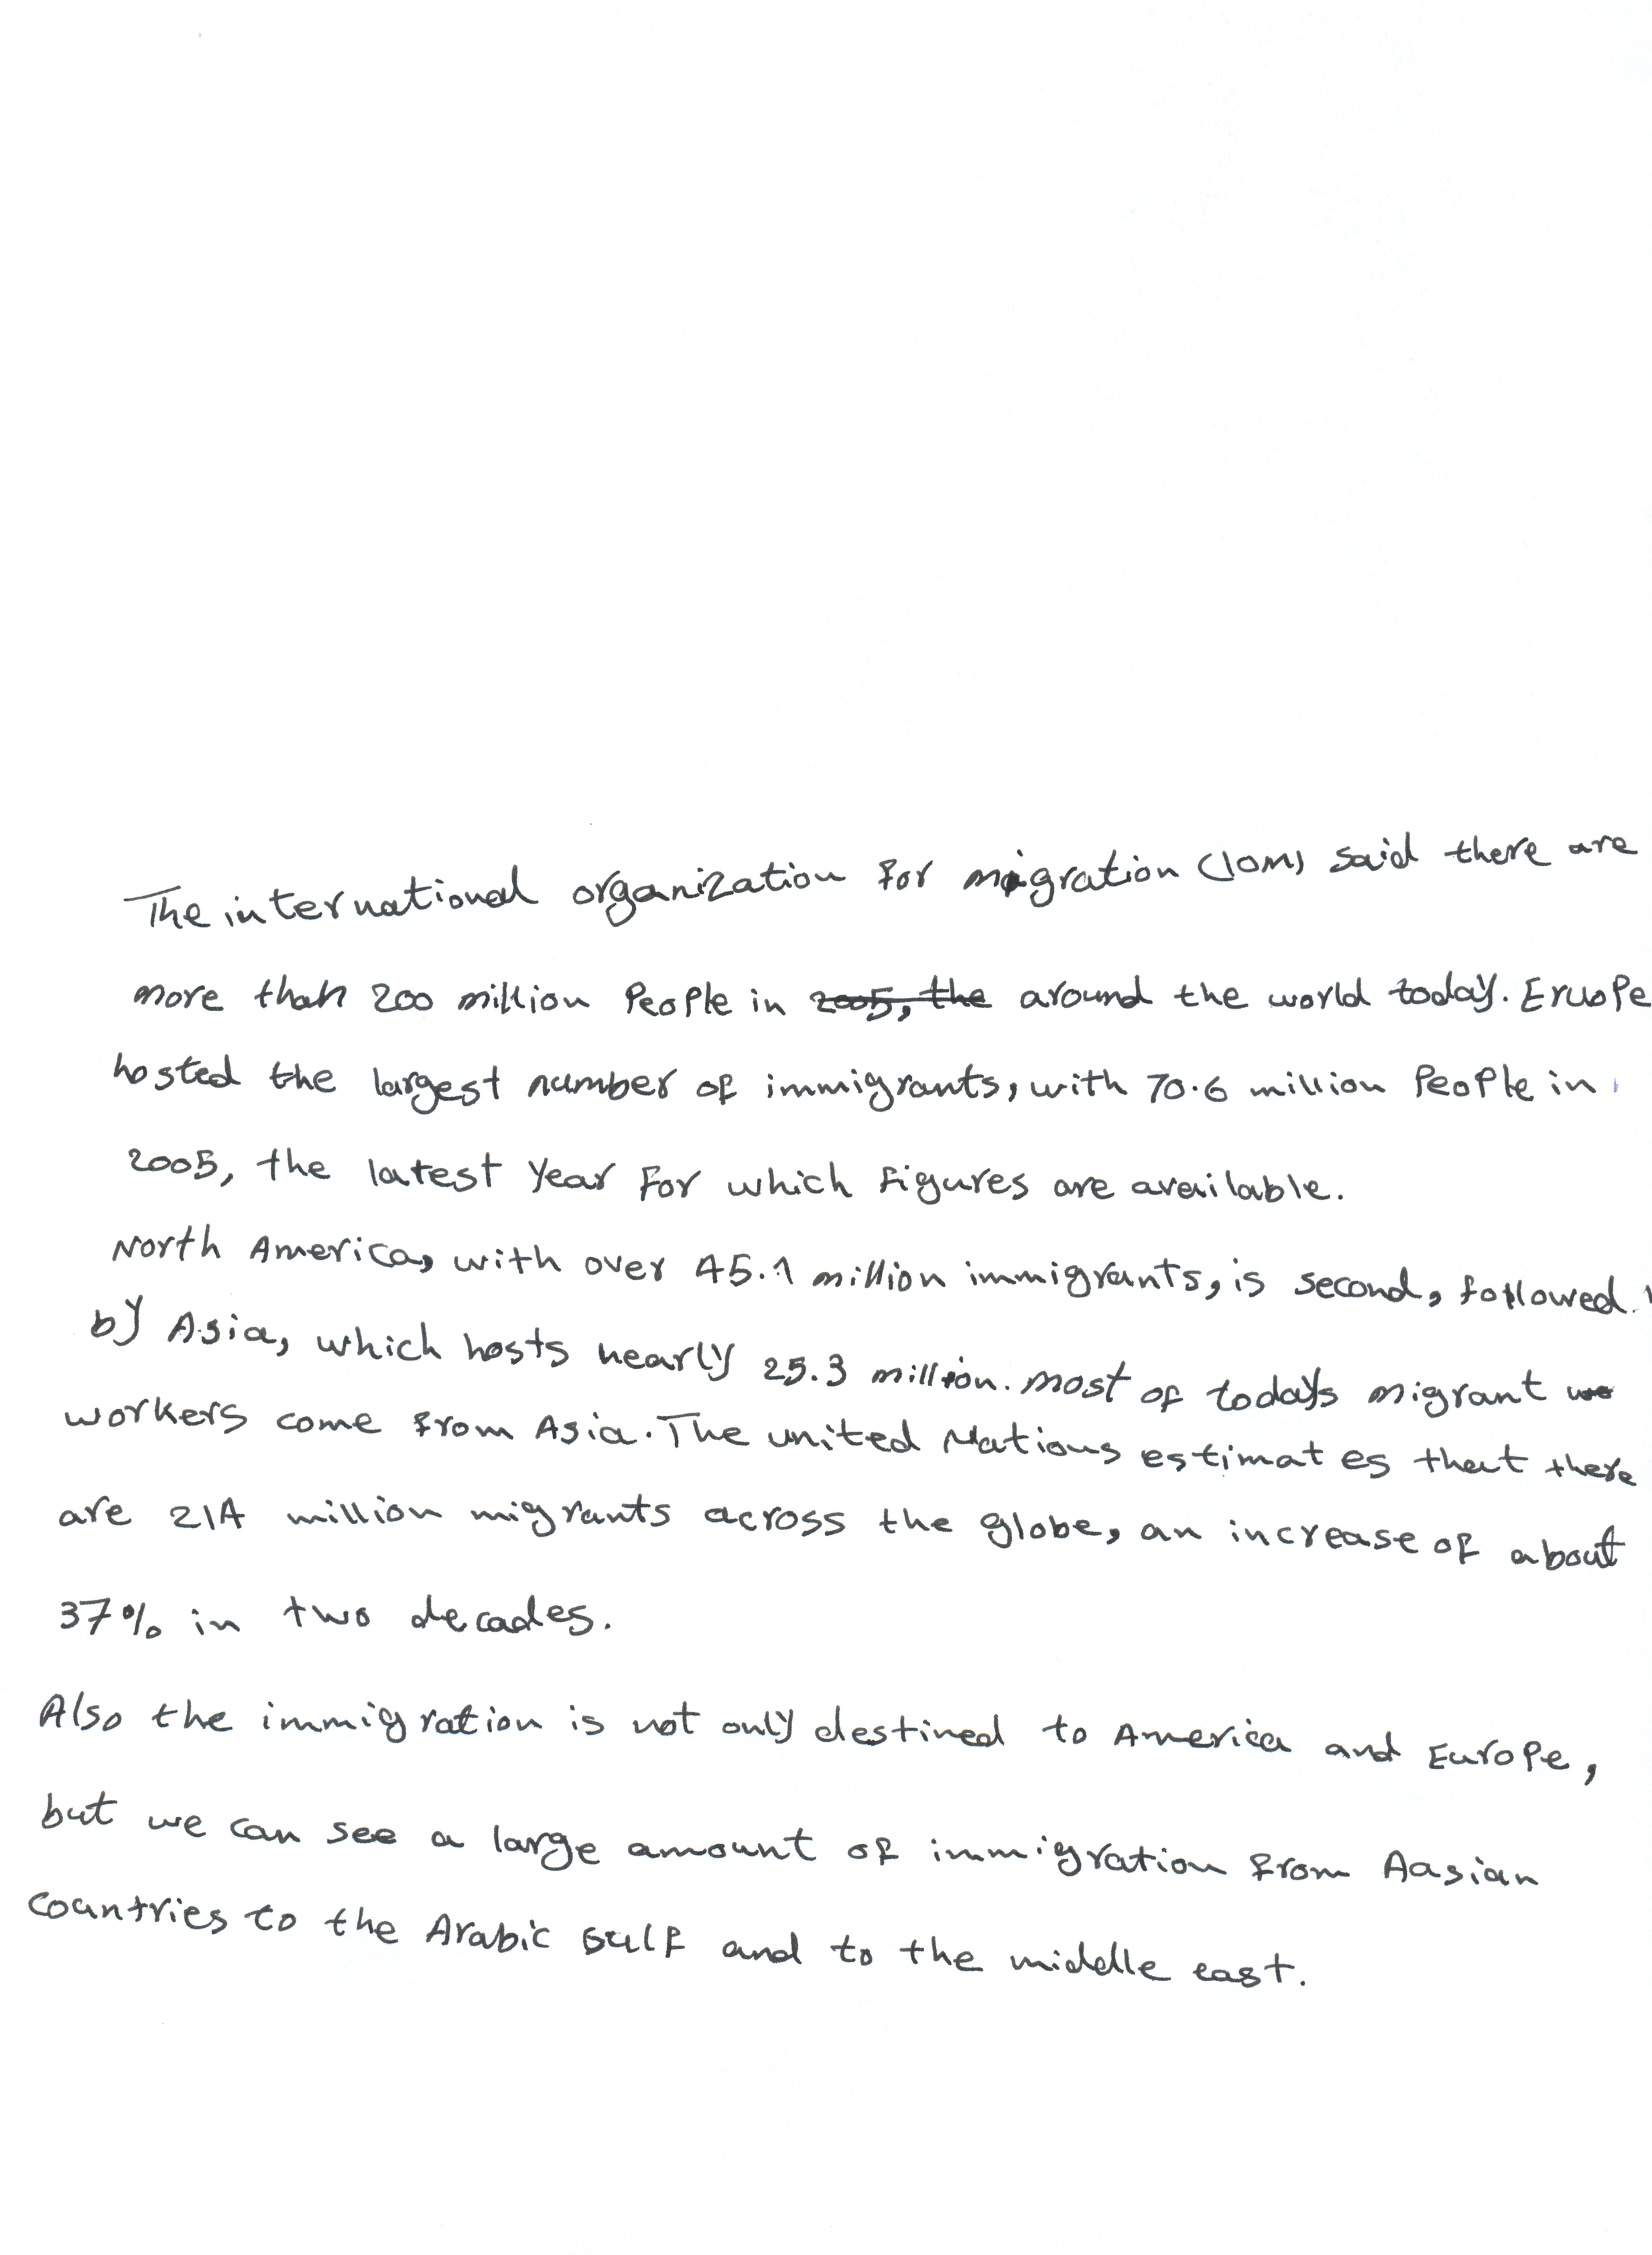 The international organization for migration (IOM) said there are
more than 200 million People in 2005, the around the world today. Eruope
hosted the largest number of immigrants, with 70.6 million People in
2005, the latest year For which figures are available.
North America, with over 45.1 million immigrants, is second, followed
by Asia, which hosts nearly 25.3 million. most of todays migrant wo
workers come from Asia. The united Nations estimates that there
are 214 million migrants across the globe, an increase of about
37% in two decades.
Also the immigration is not only destined to America and Europe,
but we can see a large amount of immigration from Aasian
countries to the Arabic Gulf and to the middle east.